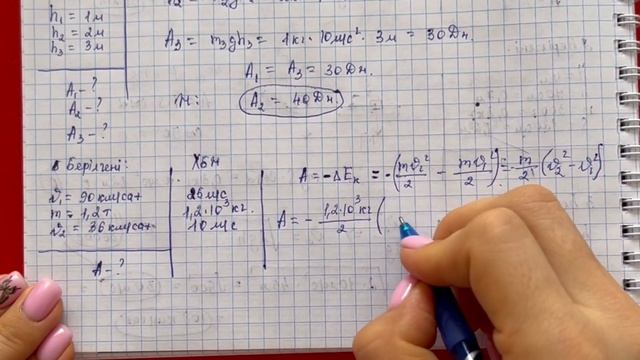 h₁ = 1м
h₂ = 2м
h₃ = 3м
A₃ = m₃gh₃ = 1кг · 10м/с² · 3м = 30Дж.
A₁ = A₃ = 30Дж.
A₁ - ?
A₂ - ?
A₃ - ?
Ж: A₂ = 40Дж.
Берілгені:
ϑ₁ = 90км/сағ
m = 1,2т
ϑ₂ = 36км/сағ
A - ?
ХБЖ
25м/с
1,2·10³кг.
10м/с
A = -ΔEₖ = -(mϑ₂²/2 - mϑ₁²/2) = -m/2 (ϑ₂² - ϑ₁²)
A = - 1,2·10³кг/2 (